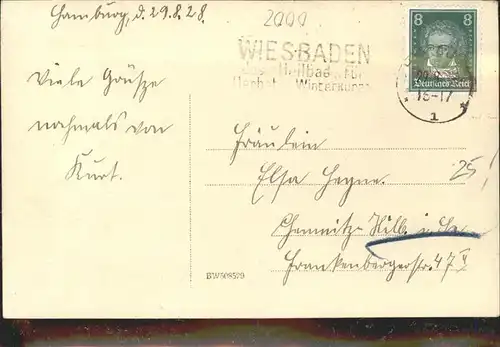 Hamburg, d. 29.8.28.
2000
WIESBADEN
das Heilbad für
Herbst Winterkuren
8 8
Deutsches Reich
16-17
1
Viele Grüsze
nochmals von
Kurt.
Fräulein
Elsa Hegne.
25!
Chemnitz-Hilb. i. Sa.
Frankenbergerstr. 47 II
BW508579